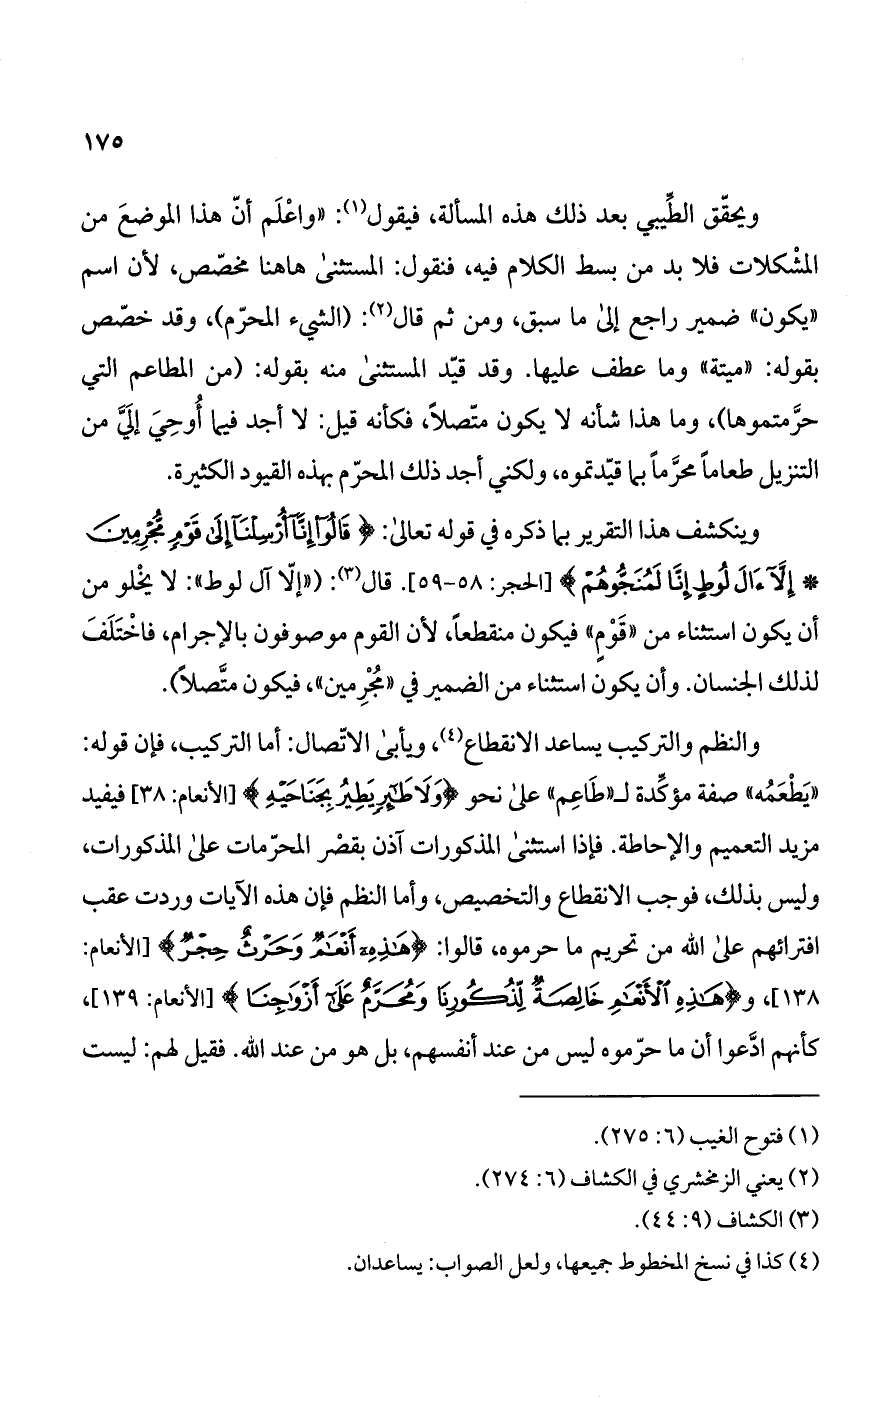 ١٧٥
ويحقّق الطِّيبي بعد ذلك هذه المسألة، فيقول(١): «واعْلَم أنّ هذا الموضعَ من
المشْكلات فلا بد من بسط الكلام فيه، فنقول: المستثنىٰ هاهنا مخصّص، لأن اسم
«يكون» ضمير راجع إلىٰ ما سبق، ومن ثم قال(٢): (الشيء المحرّم)، وقد خصّص
بقوله: «ميتة» وما عطف عليها. وقد قيّد المستثنىٰ منه بقوله: (من المطاعم التي
حرَّمتموها)، وما هذا شأنه لا يكون متّصلاً، فكأنه قيل: لا أجد فيما أُوحِيَ إلَيَّ من
التنزيل طعاماً محرَّماً بما قيّدتموه، ولكني أجد ذلك المحرّم بهذه القيود الكثيرة.
وينكشف هذا التقرير بما ذكره في قوله تعالىٰ: ﴿ قَالُوٓا۟ إِنَّآ أُرْسِلْنَآ إِلَىٰ قَوْمٍ مُّجْرِمِينَ
* إِلَّآ ءَالَ لُوطٍ إِنَّا لَمُنَجُّوهُمْ ﴾ [الحجر: ٥٨-٥٩]. قال(٣): («إلّا آل لوط»: لا يخْلو من
أن يكون استثناء من «قَوْمٍ» فيكون منقطعاً، لأن القوم موصوفون بالإجرام، فاخْتَلَفَ
لذلك الجنسان. وأن يكون استثناء من الضمير في «مُجْرِمين»، فيكون متَّصلاً).
والنظم والتركيب يساعد الانقطاع(٤)، ويأبىٰ الاتّصال: أما التركيب، فإن قوله:
«يَطْعَمُه» صفة مؤكِّدة لـ«طَاعِم» علىٰ نحو ﴿وَلَا طَٰٓئِرٍ يَطِيرُ بِجَنَاحَيْهِ ﴾ [الأنعام: ٣٨] فيفيد
مزيد التعميم والإحاطة. فإذا استثنىٰ المذكورات آذن بقصْر المحرّمات علىٰ المذكورات،
وليس بذلك، فوجب الانقطاع والتخصيص، وأما النظم فإن هذه الآيات وردت عقب
افترائهم علىٰ الله من تحريم ما حرموه، قالوا: ﴿هَٰذِهِۦٓ أَنْعَٰمٌ وَحَرْثٌ حِجْرٌ﴾ [الأنعام:
١٣٨]، و﴿هَٰذِهِ ٱلْأَنْعَٰمِ خَالِصَةٌ لِّذُكُورِنَا وَمُحَرَّمٌ عَلَىٰٓ أَزْوَٰجِنَا ﴾ [الأنعام: ١٣٩]،
كأنهم ادَّعوا أن ما حرّموه ليس من عند أنفسهم، بل هو من عند الله. فقيل لهم: ليست
(١) فتوح الغيب (٦: ٢٧٥).
(٢) يعني الزمخشري في الكشاف (٦: ٢٧٤).
(٣) الكشاف (٩: ٤٤).
(٤) كذا في نسخ المخطوط جميعها، ولعل الصواب: يساعدان.